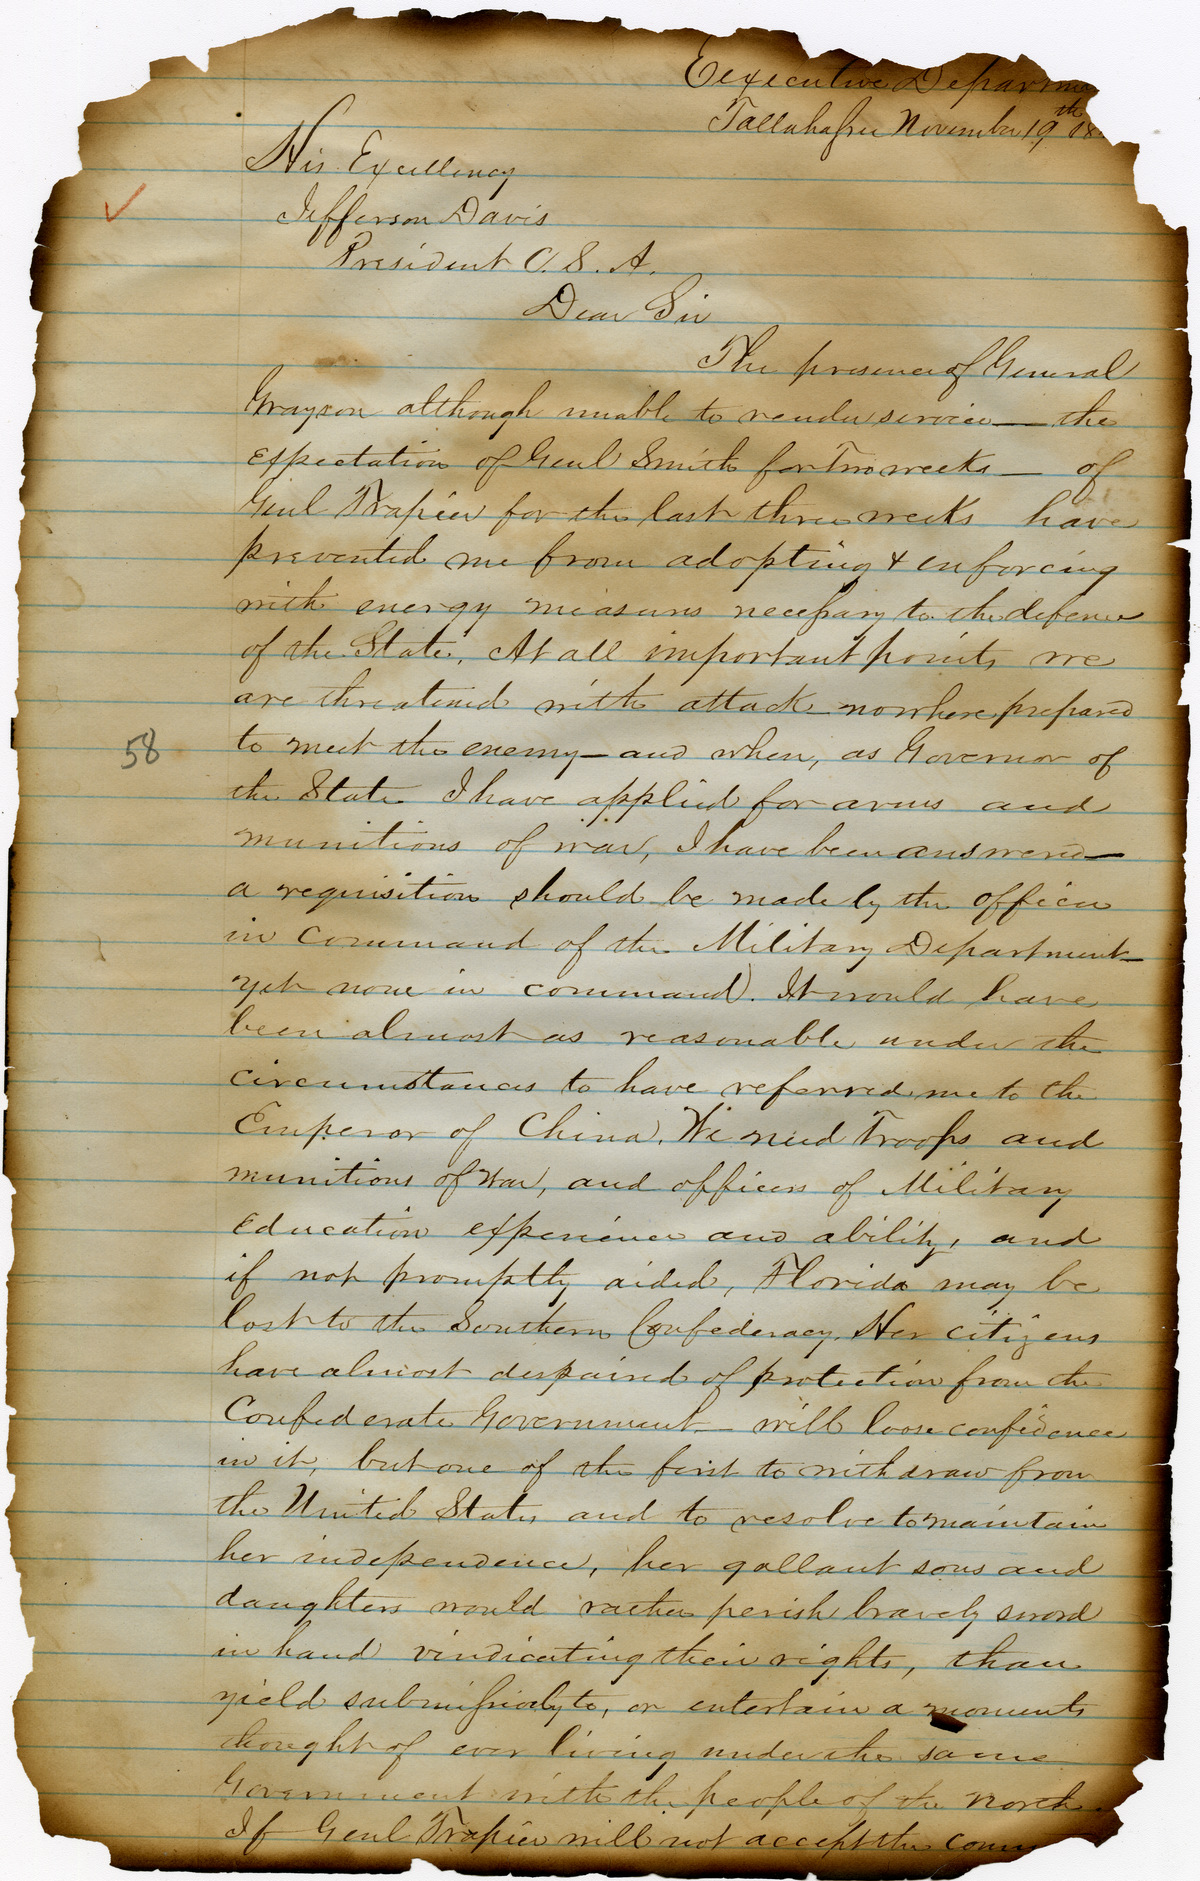 Executive Departme
Tallahassee November 19th 18
His Excellency
Jefferson Davis
President C. S. A.
Dear Sir
The presence of General
Grayson although unable to render service — the
expectation of Genl Smith for Two weeks — of
Genl Trapier for the last three weeks have
prevented me from adopting & enforcing
with energy measures necessary to the defence
of the State. At all important points we
are threatened with attack — nowhere prepared
to meet the enemy — and when, as Governor of
58
the State I have applied for arms and
munitions of war, I have been answered —
a requisition should be made by the officer
in command of the Military Department —
yet none in command. It would have
been almost as reasonable under the
circumstances to have referred me to the
Emperor of China. We need Troops and
munitions of War, and officers of Military
Education experience and ability, and
if not promptly aided, Florida may be
lost to the Southern Confederacy. Her citizens
have almost despaired of protection from the
Confederate Government — will loose confidence
in it, but one of the first to withdraw from
the United States and to resolve to maintain
her independence, her gallant sons and
daughters would rather perish bravely sword
in hand vindicating their rights, than
yield submissively to, or entertain a moments
thought of ever living under the same
Government with the people of the North.
If Genl Trapier will not accept the comm